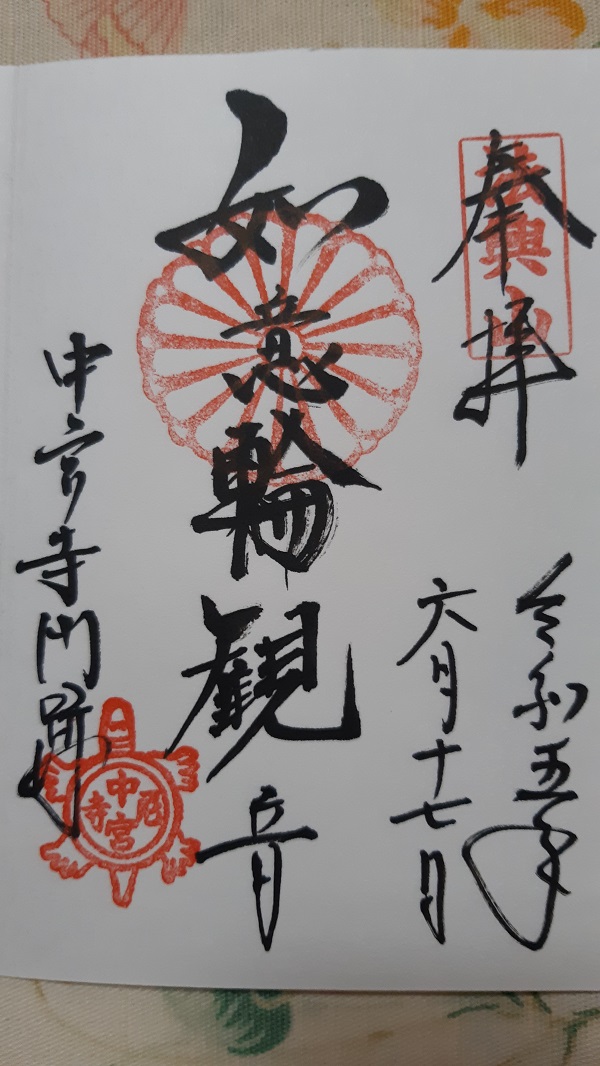 奉拝
法興山
令和五年
六月十七日
如意輪観音
中宮寺門跡
中宮尼寺